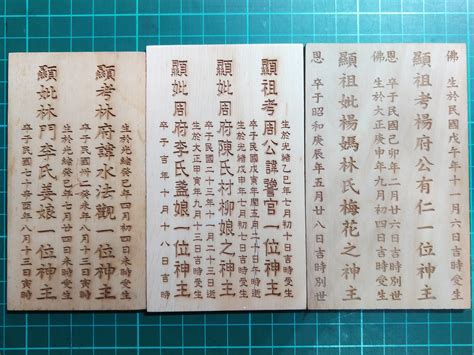 佛
生於民國戊年十一月六日吉時受生
顯祖考楊府公有仁一位神主
卒于民國卯年二月廿六日吉時別世
佛
生於大正庚申年九月初四日吉時受生
顯祖妣楊媽林氏梅花之神主
卒于昭和庚辰年五月廿八日吉時別世
恩
生於光緒乙巳年七月初十日吉時受生
顯祖考周公諱讐官一位神主
卒于民國戊寅年閏五月十日午時逝
生於光緒戊申年七月初八日吉時受生
顯妣周府陳氏村柳娘之神主
卒于民國二十九年月二十三日逝
生於大正甲寅年二月十三日吉時受生
顯妣周府李氏盖娘一位神主
卒于吉年十月十八日吉時
生於光緒癸巳年四月初四日未時受生
顯考林府諱水法觀一位神主
卒于民國卅二癸未年八月十三日時
生於光緒癸巳年七月廿四日時受生
顯妣林門李氏姜娘一位神主
卒于民國年八月十三日寅時